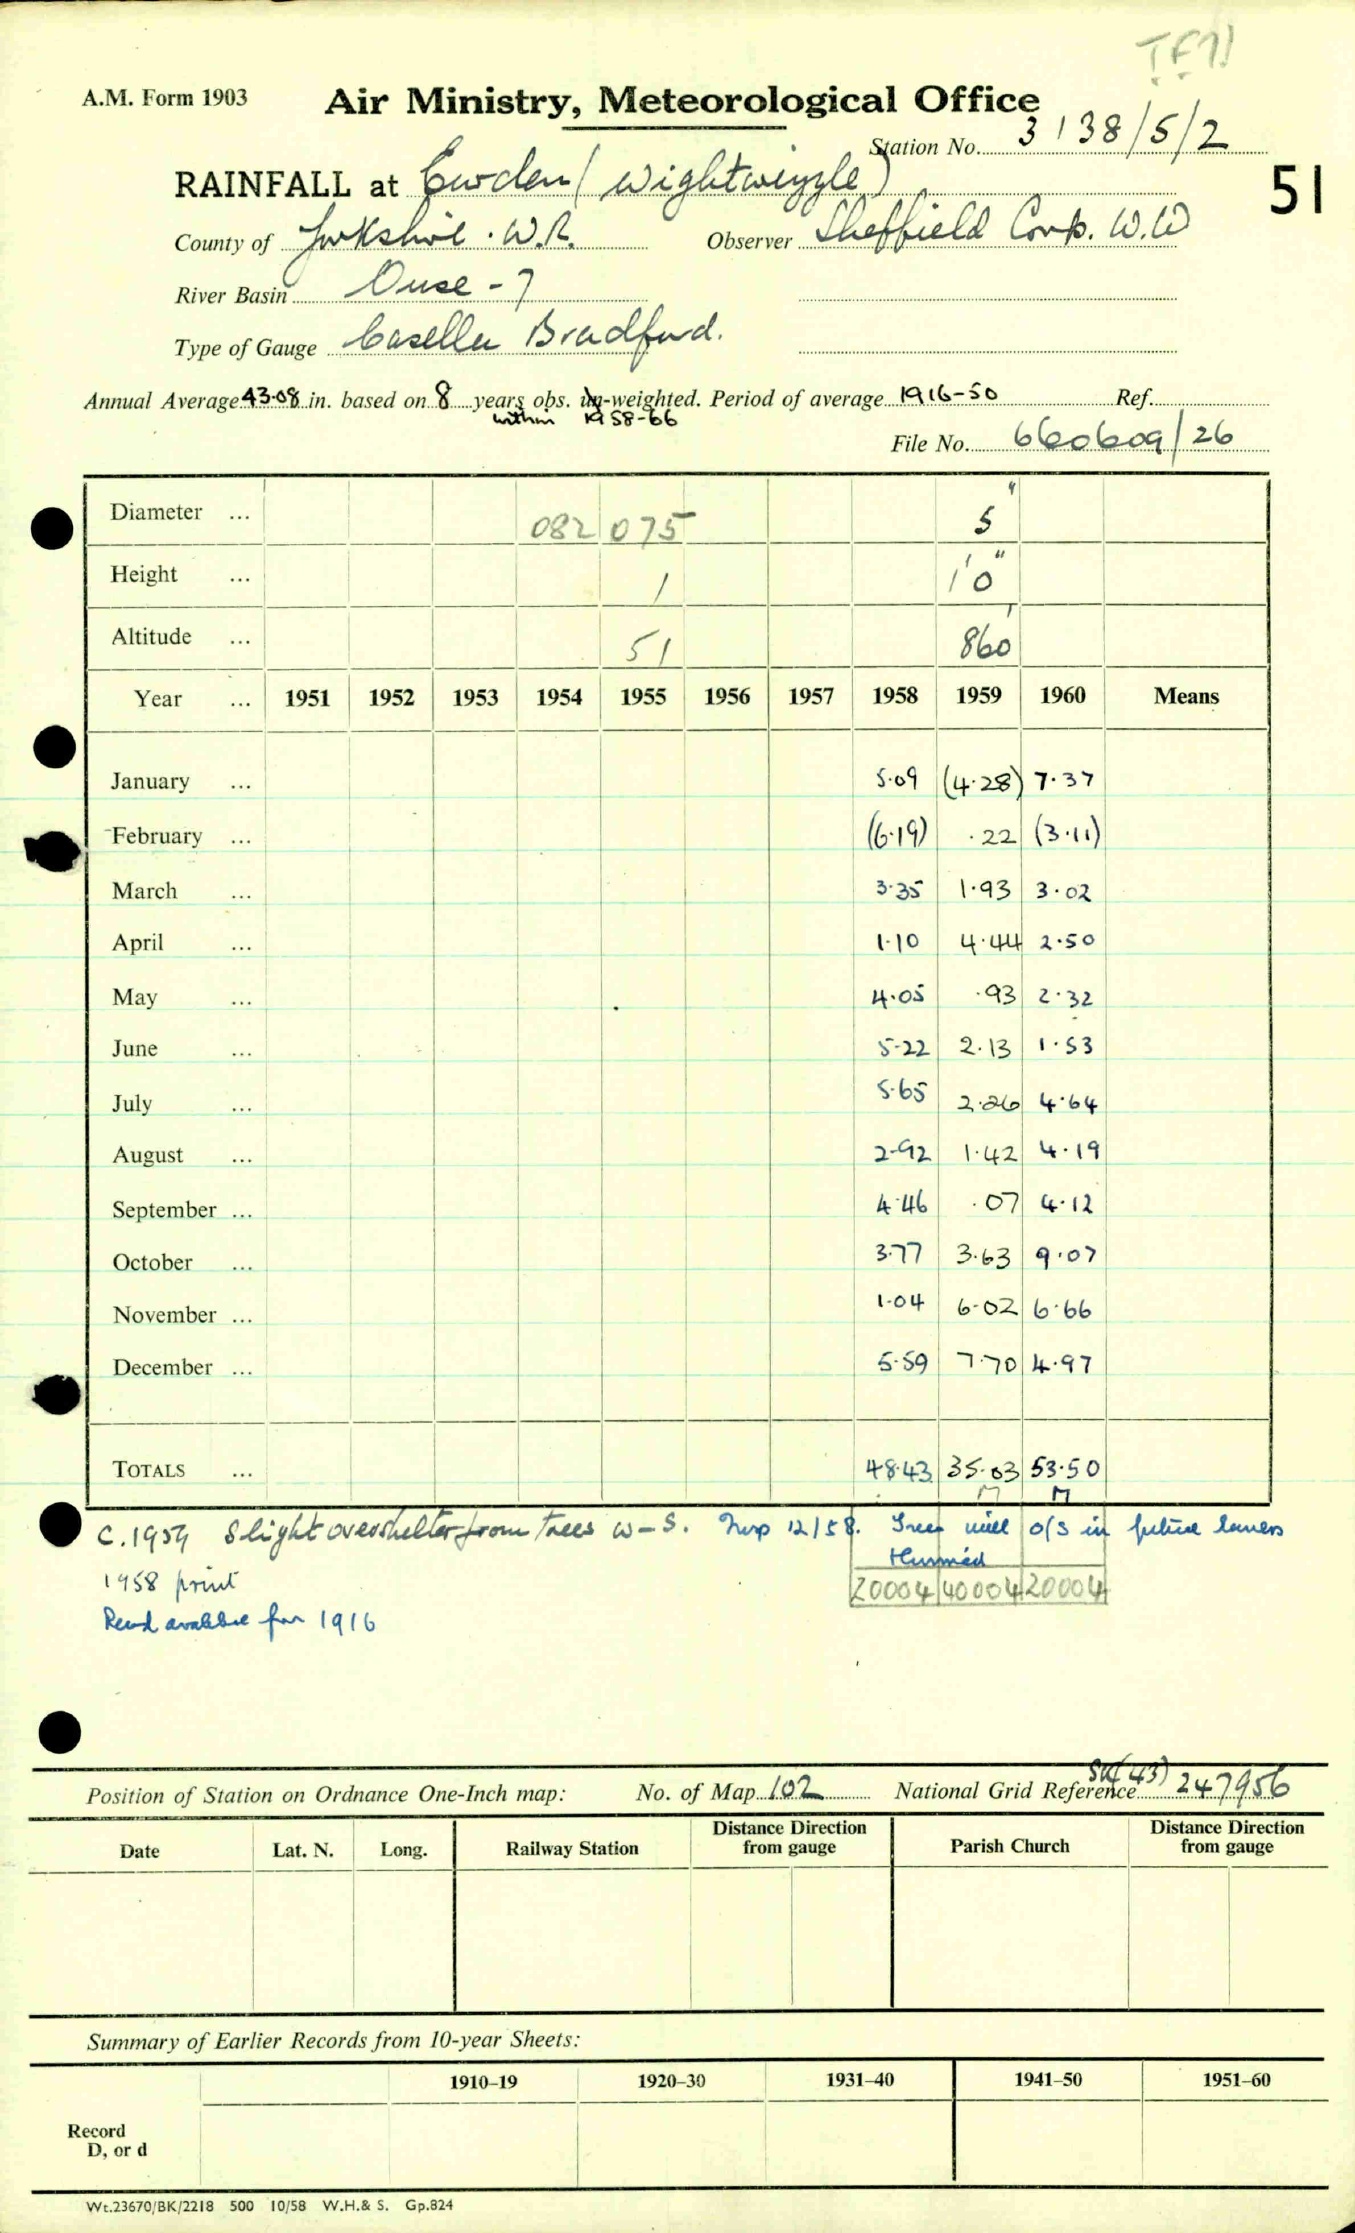 TF71
A.M. Form 1903
Air Ministry, Meteorological Office
Station No. 3138/5/2
RAINFALL at Ewden (Wightwizzle)
51
County of Yorkshire. W.R. Observer Sheffield Corp. W.W
River Basin Ouse - 7
Type of Gauge Casella Bradford.
Annual Average 43·08 in. based on 8 years obs. un-weighted. Period of average 1916-50 Ref.
within 1958-66
File No. 660609/26
Diameter ... 082 075 5"
Height ... 1 1'0"
Altitude ... 51 860'
Year ... 1951 1952 1953 1954 1955 1956 1957 1958 1959 1960 Means
January ... 5·09 (4·28) 7·37
February ... (6·19) ·22 (3·11)
March ... 3·35 1·93 3·02
April ... 1·10 4·44 2·50
May ... 4·05 ·93 2·32
June ... 5·22 2·13 1·53
July ... 5·65 2·26 4·64
August ... 2·92 1·42 4·19
September ... 4·46 ·07 4·12
October ... 3·77 3·63 9·07
November ... 1·04 6·02 6·66
December ... 5·59 7·70 4·97
TOTALS ... 48·43 35·03 53·50
C. 1959 Slight overshelter from trees W-S. Insp 12/58. Trees will o/s in future unless
thinned
20004 40004 20004
1958 print
Read available for 1916
Position of Station on Ordnance One-Inch map: No. of Map 102 National Grid Reference SK(43) 247956
Date Lat. N. Long. Railway Station Distance Direction from gauge Parish Church Distance Direction from gauge
Summary of Earlier Records from 10-year Sheets:
1910–19 1920–30 1931–40 1941–50 1951–60
Record
D, or d
Wt.23670/BK/2218 500 10/58 W.H.& S. Gp.824